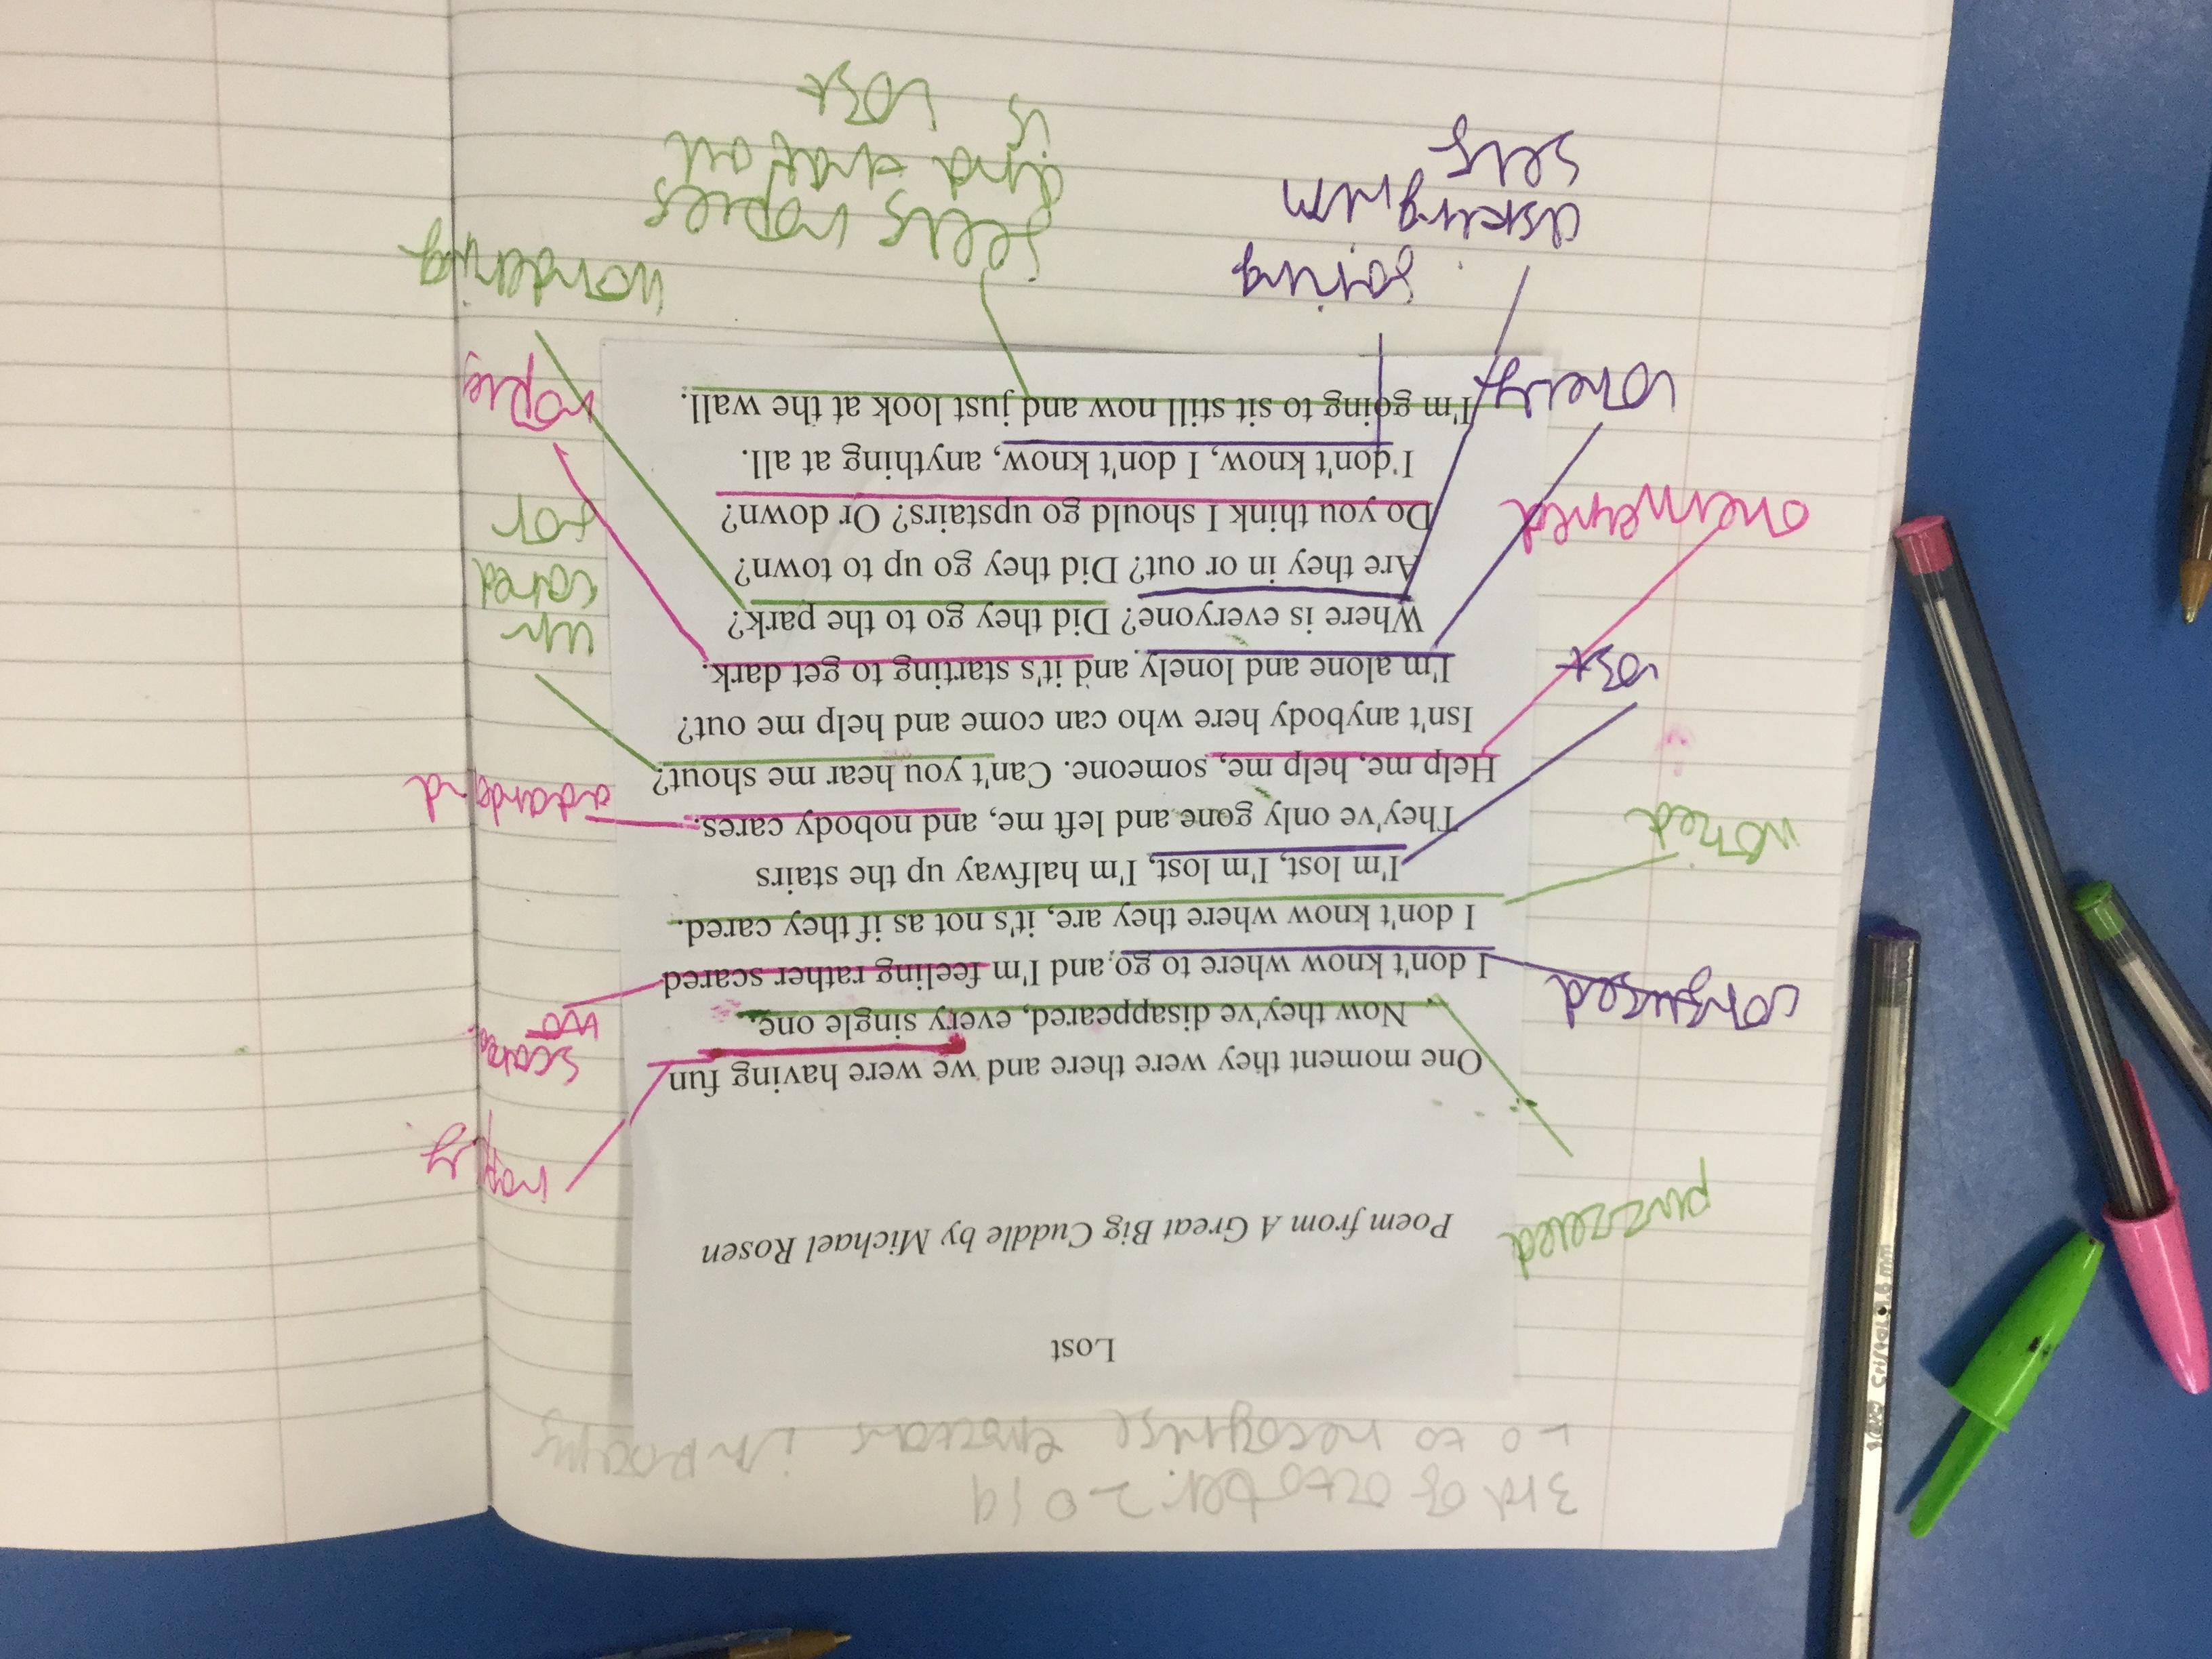 3rd of october 2019
Lo to recognise emotions in poems
Lost
Poem from A Great Big Cuddle by Michael Rosen
One moment they were there and we were having fun
Now they've disappeared, every single one.
I don't know where to go, and I'm feeling rather scared
I don't know where they are, it's not as if they cared.
I'm lost, I'm lost, I'm halfway up the stairs
They've only gone and left me, and nobody cares.
Help me, help me, someone. Can't you hear me shout?
Isn't anybody here who can come and help me out?
I'm alone and lonely and it's starting to get dark.
Where is everyone? Did they go to the park?
Are they in or out? Did they go up to town?
Do you think I should go upstairs? Or down?
I don't know, I don't know, anything at all.
I'm going to sit still now and just look at the wall.
puzzeled
confused
wored
lost
lonely
happy
scared
adandend
un
cared
for
hoples
wondering
feels hoples
and that all
is
lost
asking him
self